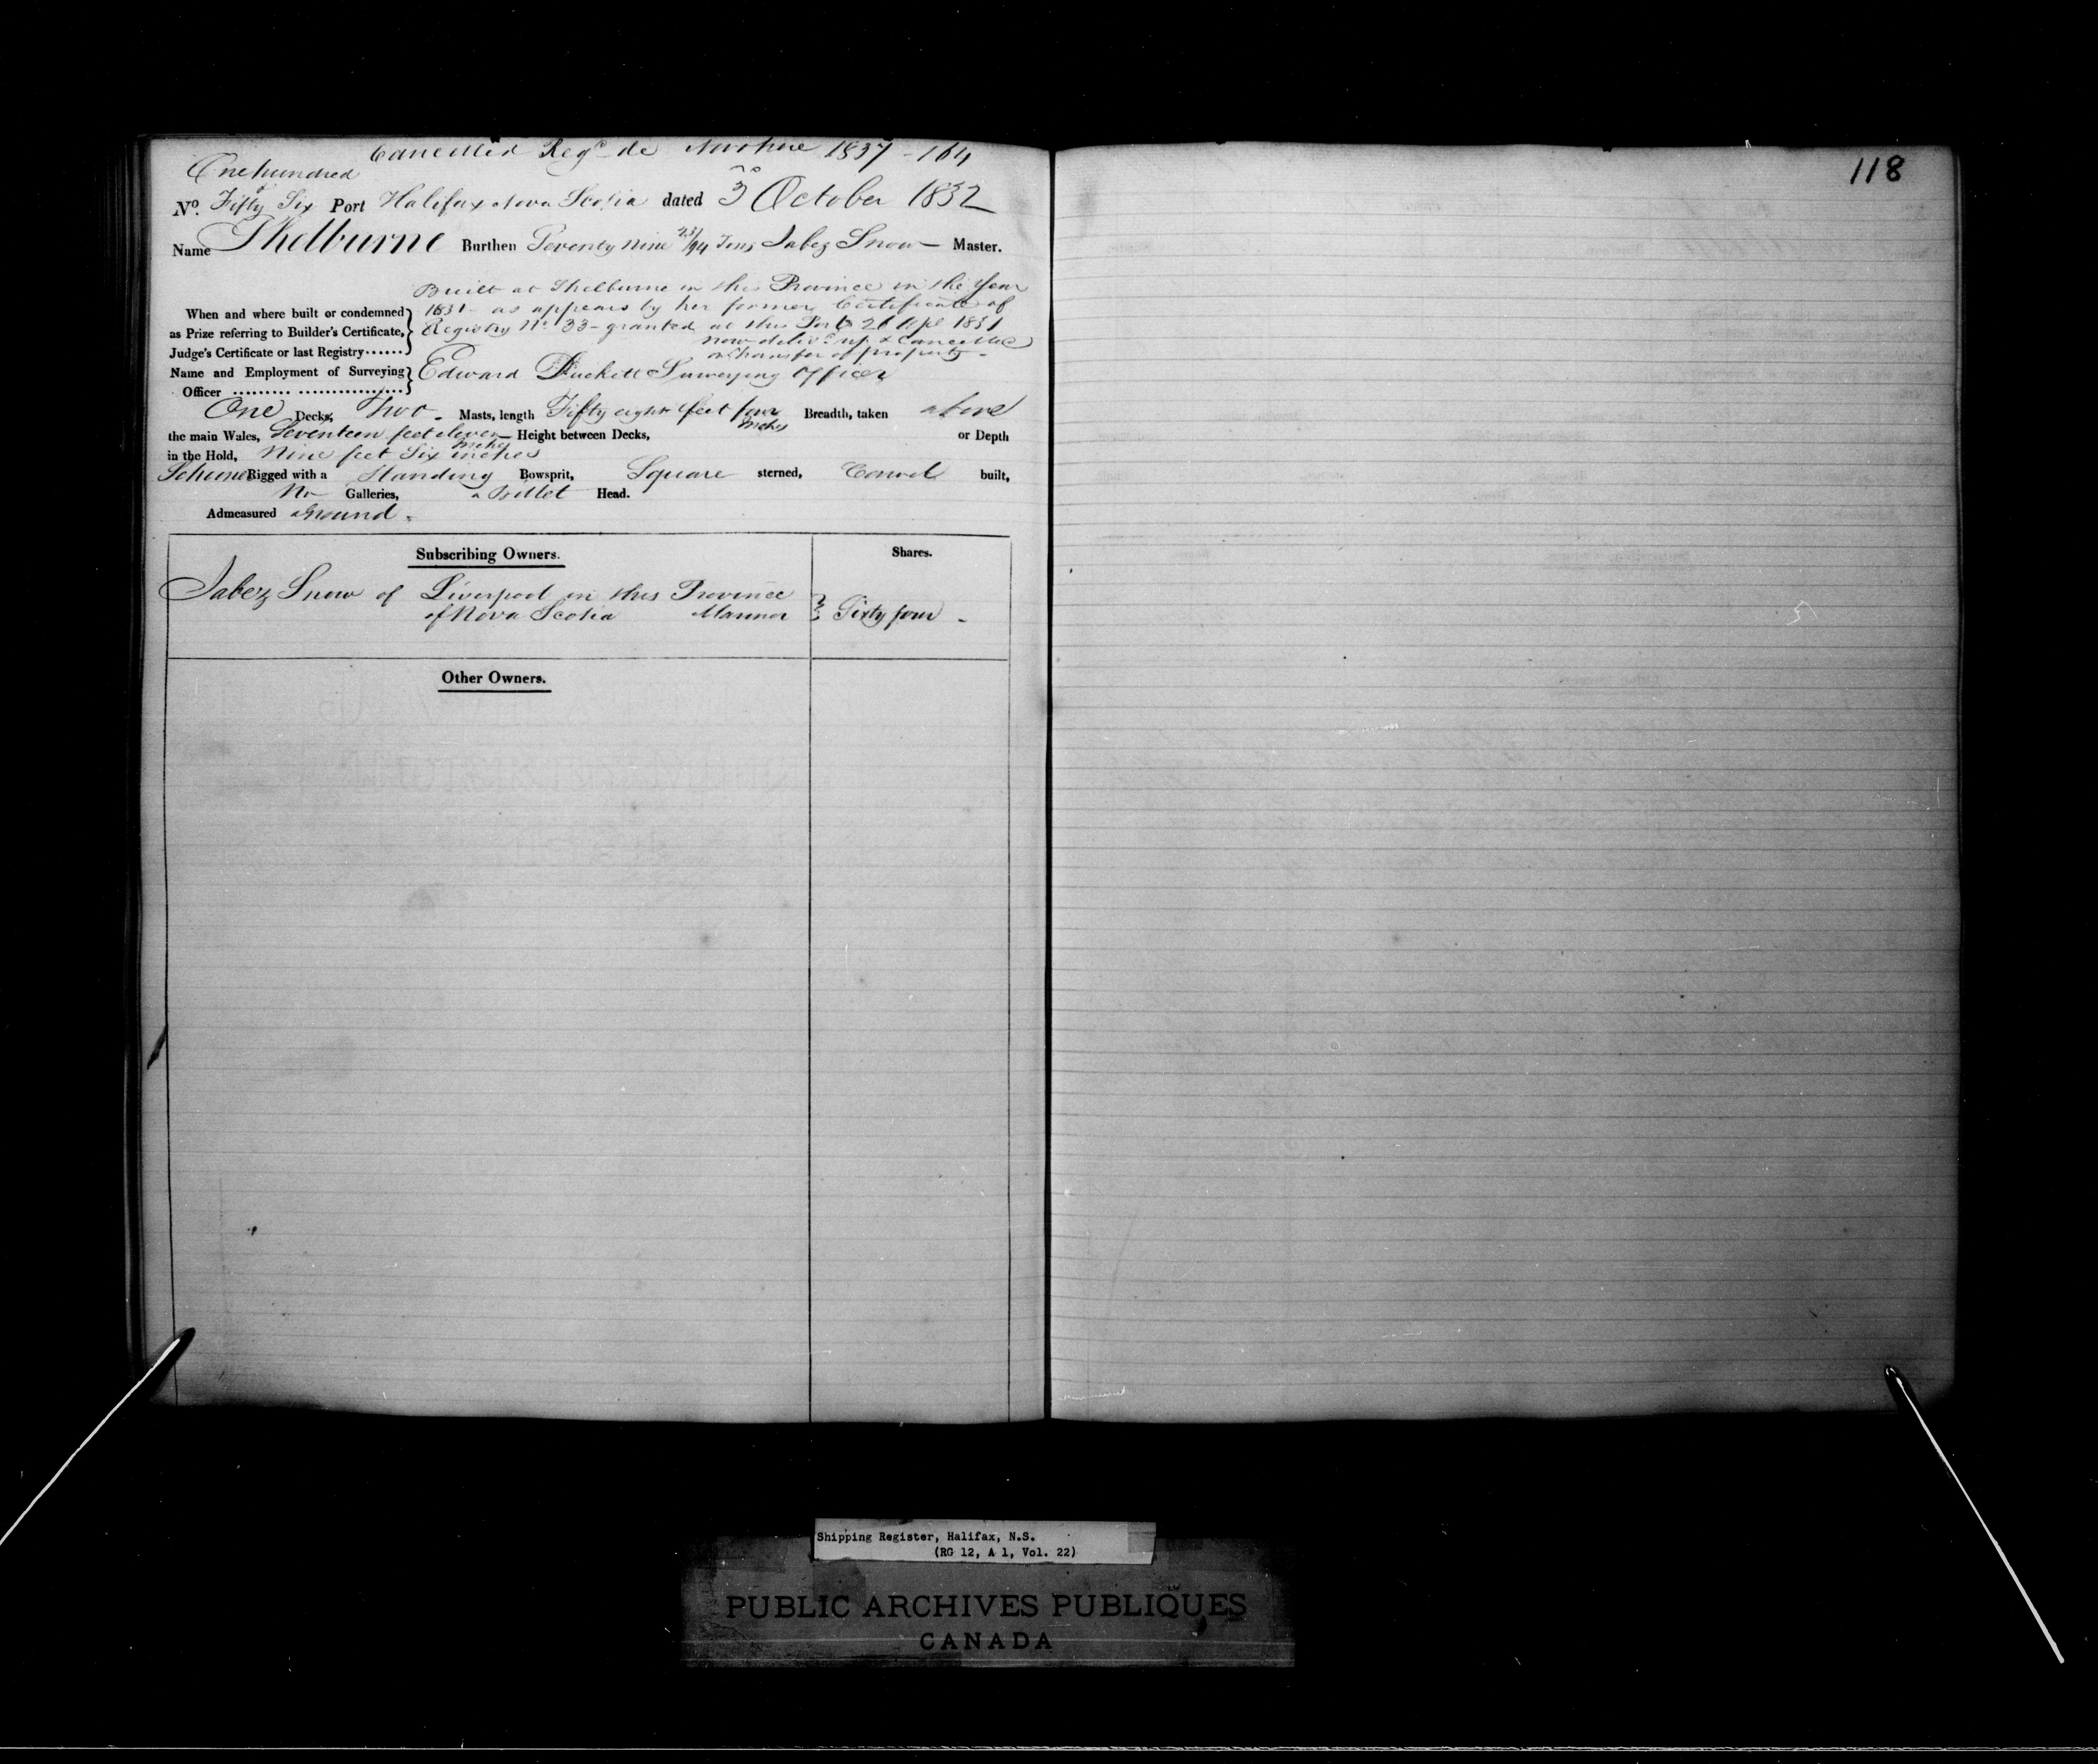 Cancelled Regd de Novo here 1837 - 164
118
One hundred
No. Fifty Six Port Halifax Nova Scotia dated 3 October 1832
Name Shelburne Burthen Seventy nine 23/94 Tons Jabez Snow Master.
Built at Shelburne in this Province in the Year
When and where built or condemned 1831 as appears by her former Certificate of
as Prize referring to Builder's Certificate, Registry No 33 - granted at this Port 26 Apl 1831
Judge's Certificate or last Registry...... now delivd up & Cancelled
transfer of property -
Name and Employment of Surveying Edward Duckett Surveying Officer
Officer
One Decks, Two - Masts, length Fifty eight feet four inches Breadth, taken above
the main Wales, Seventeen feet eleven inches Height between Decks, or Depth
in the Hold, Nine feet Six inches
Schooner Rigged with a Standing Bowsprit, Square sterned, Carvel built,
No Galleries, a Billet Head.
Admeasured aground.
Subscribing Owners. Shares.
Jabez Snow of Liverpool in this Province
of Nova Scotia Mariner Sixty four -
Other Owners.
Shipping Register, Halifax, N.S.
(RG 12, A 1, Vol. 22)
PUBLIC ARCHIVES PUBLIQUES
CANADA